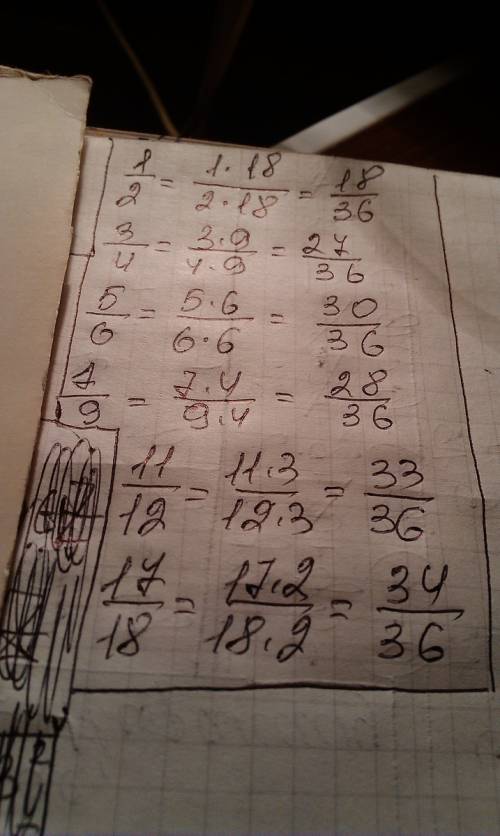 1/2 = 1·18/2·18 = 18/36
3/4 = 3·9/4·9 = 27/36
5/6 = 5·6/6·6 = 30/36
7/9 = 7·4/9·4 = 28/36
11/12 = 11·3/12·3 = 33/36
17/18 = 17·2/18·2 = 34/36